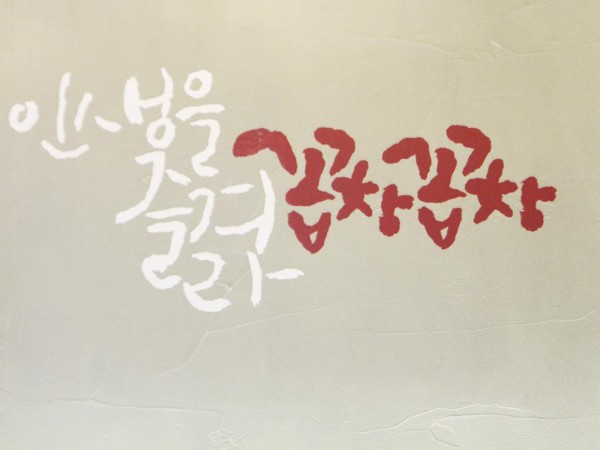 인생을
즐겨라 꼽창꼽창